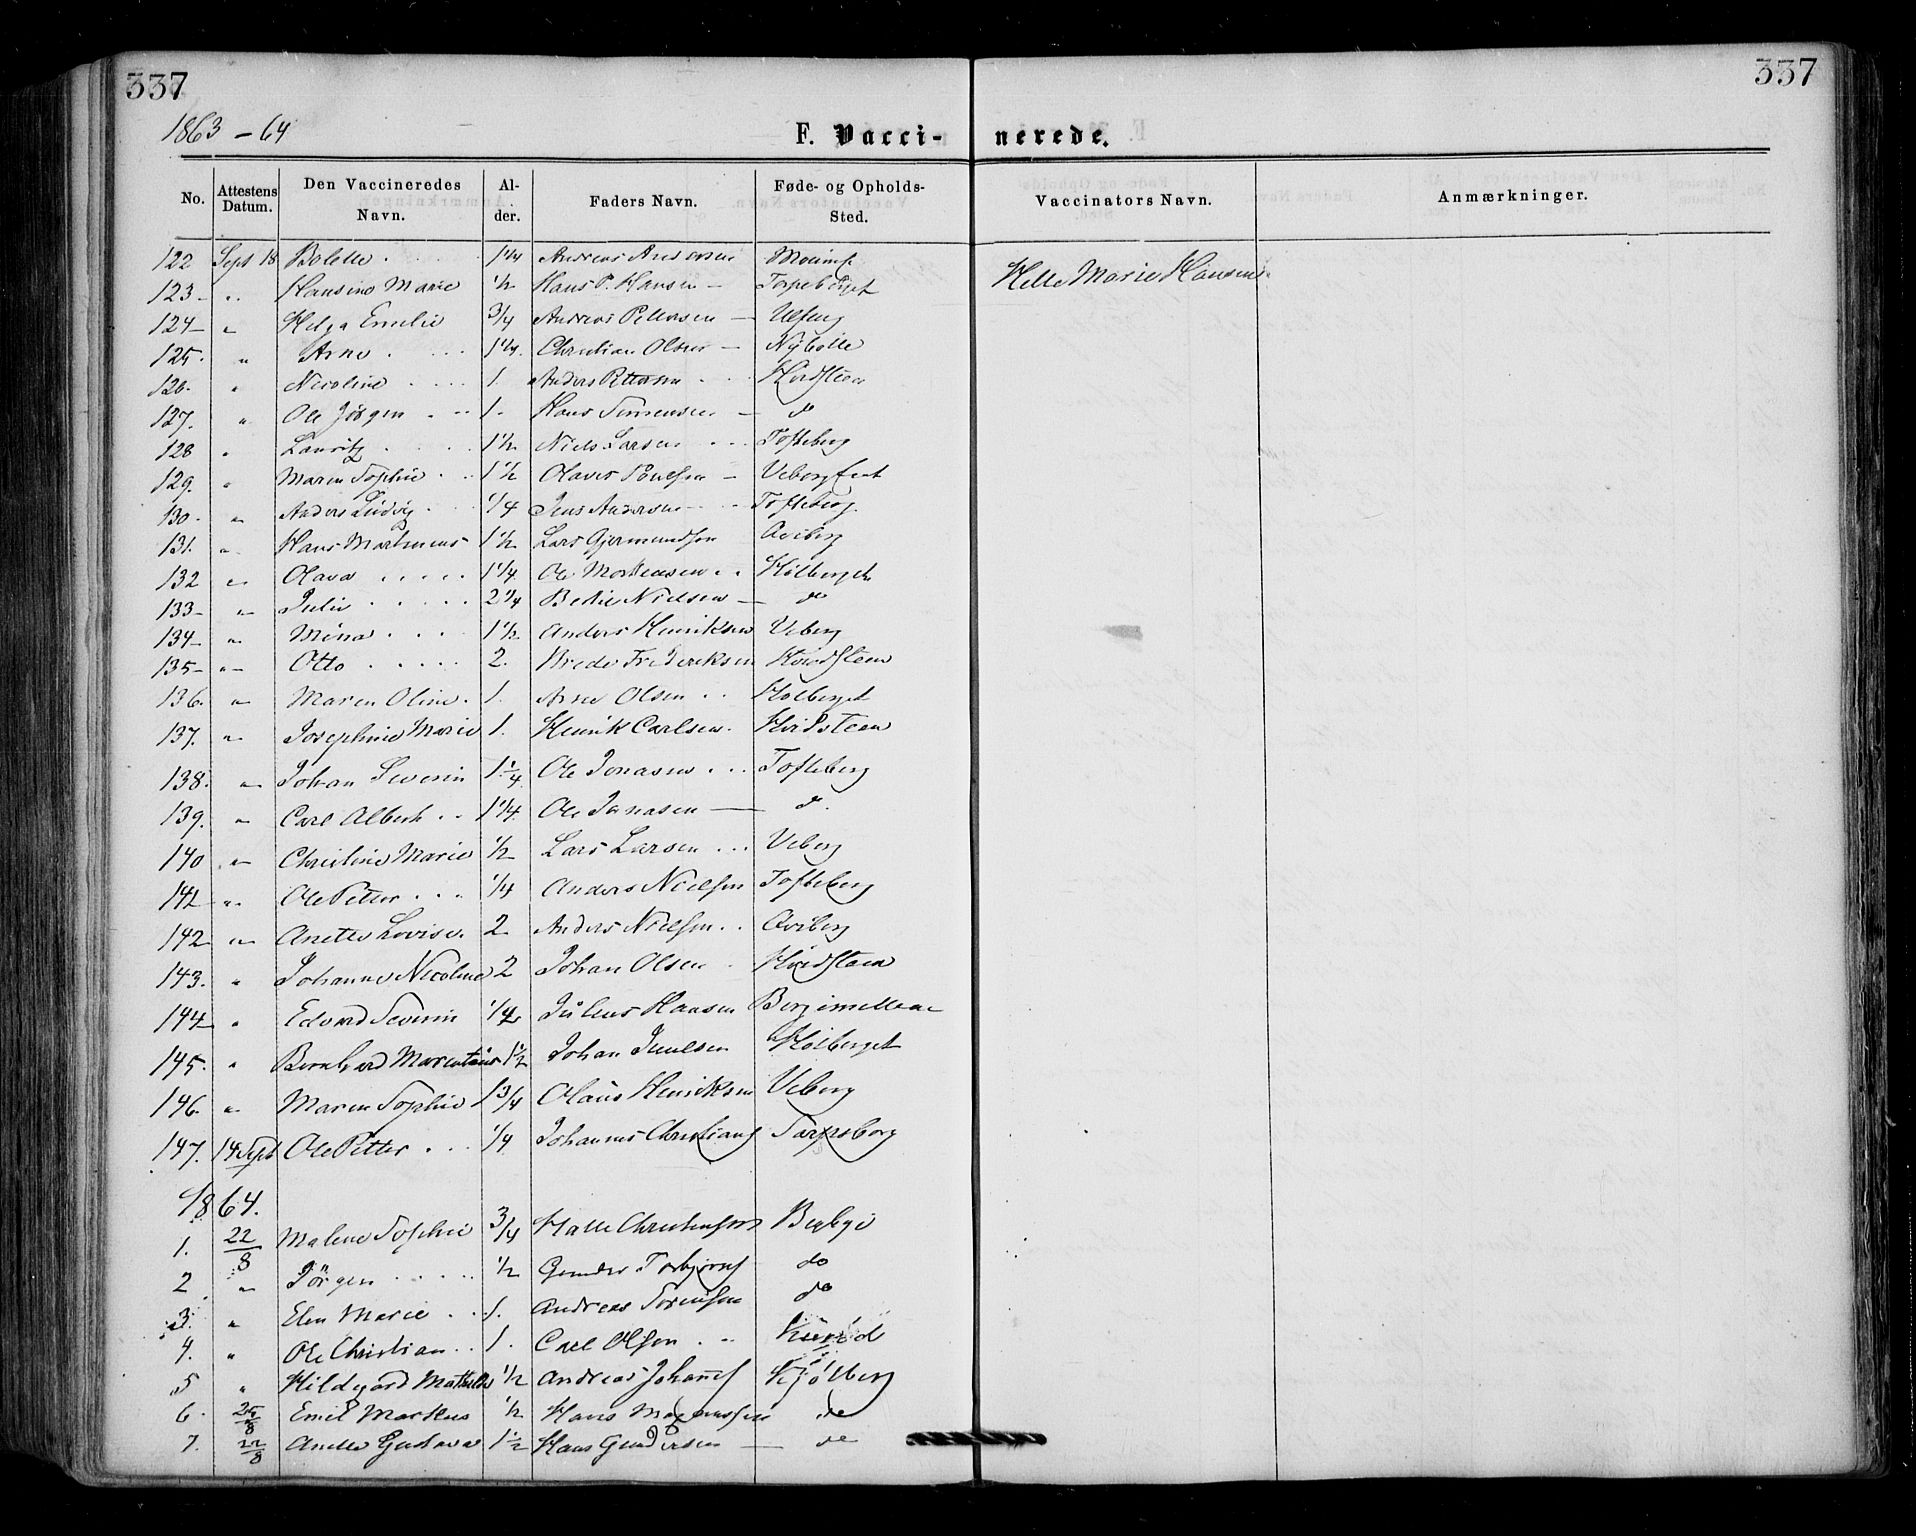 337 337
1863-64
F. Vacci- nerede.
No. Attestens Datum. Den Vaccineredes Navn. Al-der. Faders Navn. Føde- og Opholds-Sted. Vaccinators Navn. Anmærkninger.
122 Sept 18 Bolette 1 1/4 Andreas Andersen Helle Marie Hansen
123 " Hansine Marie 1/2 Hans P. Hansen Torpeberget
124 " Helga Emilie 3/4 Andreas Pettersen
125. " Arne 1 1/4. Christian Olsen Nÿbølle
126. " Nicoline 1. Anders Pettersen Hvidsteen
127. " Ole Jørgen 1. Hans Simensen do
128 " Lauritz 1 1/2 Niels Larsen Tofteberg
129. " Maren Sophie 1 1/2 Olaves Poulsen
130. " Anders Ludvig 1/4 Jens Andersen Tofteberg.
131. " Hans Martinius 1 1/2 Lars Gjermundsen Aviberg
132 " Olava 1 1/4. Ole Mortensen Holberget
133 " Julie 2 1/4 Bertil Nielsen do
134 " Mina 1 1/2 Anders Henriksen Veberg
135 " Otto 2. Brede Frederiksen Hvidsteen
136. " Maren Oline 1. Arne Olsen Holberget
137. " Josephine Marie 1. Henrik Carlsen. Hvidsteen
138. " Johan Severin 1 1/4 Ole Jonasen Tofteberg
139. " Carl Albert 1 1/4. Ole Jonasen do.
140 " Christine Marie 1/2 Lars Larsen Veberg
142 " Ole Petter 1/4 Anders Nielsen Tofteberg
142 " Anette Lovise. 2 Anders Nielsen Aviberg
143. " Johanne Nicoline 2 Johan Olsen Hvidsteen
144 " Edvard Severin Julius Hansen
145. " Bernhard 1 1/2 Johan Juulsen Holberget
146. " Maren Sophie 1 3/4 Olaus Henriksen Veberg
147. 14 Sept Ole Petter 1/4 Johannes Christians Sarpsborg
1864.
1. 22/8 Malene Sophie 3/4 Halle Christensen Bergbÿ
2 " Jörgen 1/2 Gunder Torbjørns do
3. " Elen Marie 1. Andreas Sørensen do
4. " Ole Christian 1. Carl Olsen
5 " Hildegard Mathilde 1/2 Andreas Johans Kjølberg
6. 25/8 Emil Markus 1/2 Hans Magnussen do
7. 22/8 Anette Gustava 1 1/2 Hans Gundersen do